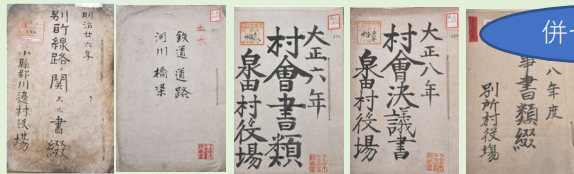 明治廿六年
別所線路ニ関スル書綴
小縣郡川邊村役場
鉄道 道路
河川 橋梁
大正六年
村會書類
泉田村役場
大正八年
村會決議書
泉田村役場
併せ
八年度
事書類綴
別所村役場